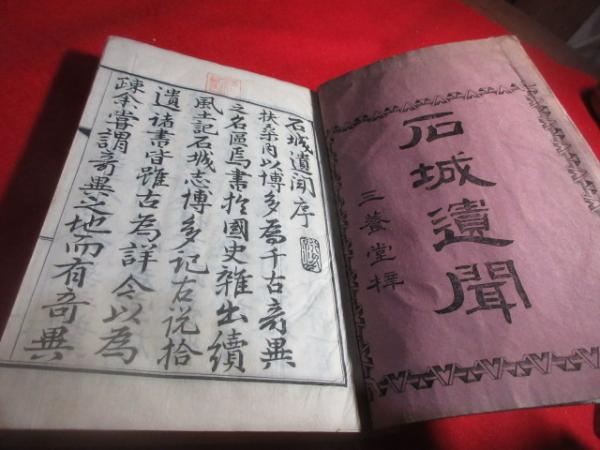 石城遺聞
三養堂梓
石城遺聞序
扶桑内以博多為千古竒異
之名區焉書於國史雜出續
風土記石城志博多記古说拾
遺諸書皆雖古為詳今以為
疎余嘗謂竒異之地而有竒異